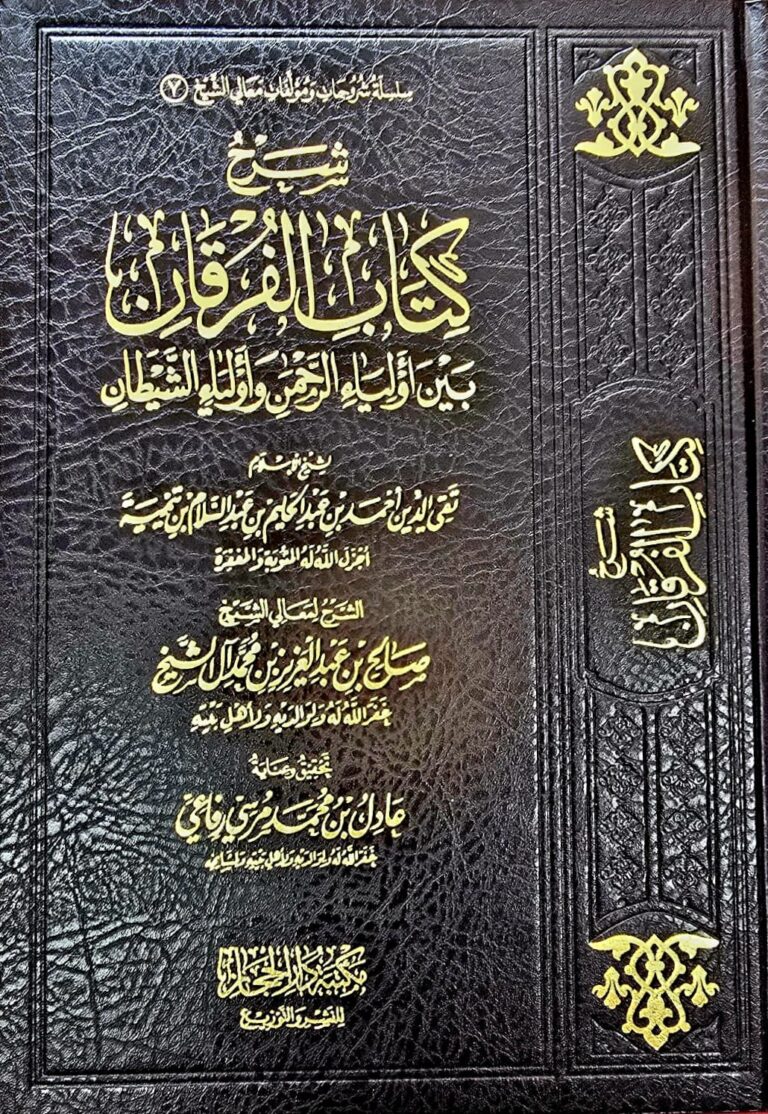 سِلْسِلَةُ شُرُوحَاتِ وَمُؤَلَّفَاتِ مَعَالِي الشَّيْخِ ٧
شَرْحُ
كِتَابِ الْفُرْقَانِ
بَيْنَ أَوْلِيَاءِ الرَّحْمَنِ وَأَوْلِيَاءِ الشَّيْطَانِ
لشيخ الإسلام
تقي الدين أحمد بن عبد الحليم بن عبد السلام بن تيمية
أجزل الله له المثوبة والمغفرة
الشرح لمعالي الشيخ
صالح بن عبد العزيز بن محمد آل الشيخ
غفر الله له ولوالديه ولأهل بيته
تحقيق وعناية
عادل بن محمد مرسي رفاعي
غفر الله له ولوالديه ولأهل بيته ولمشايخه
مكتبة دار الحجاز
للنشر والتوزيع
شرح
كتاب الفرقان